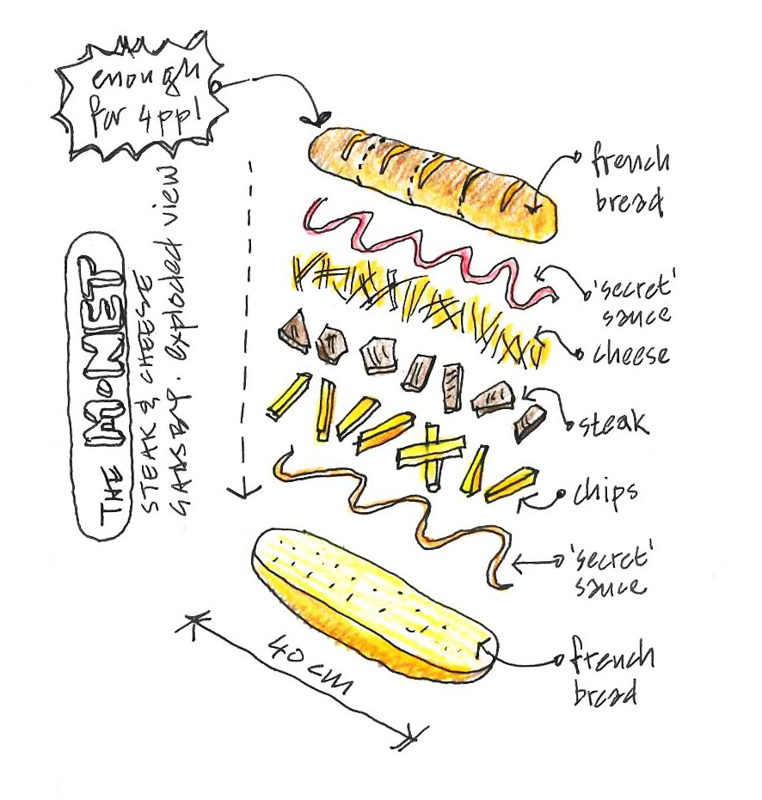 enough
for 4 ppl
french
bread
'secret'
sauce
cheese
steak
chips
'secret'
sauce
french
bread
40cm
THE M•NET
STEAK & CHEESE
GATSBY. exploded view